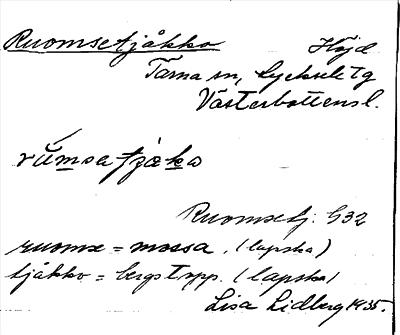 Ruomsetjåkko Höjd
Tärna sn, Lycksele tg
Västerbottensl.
rúmsatjæko
Ruomsetj. G32
ruomse = mossa. (lapska)
tjåkko = bergstopp. (lapska)
Lisa Lidberg 1935.